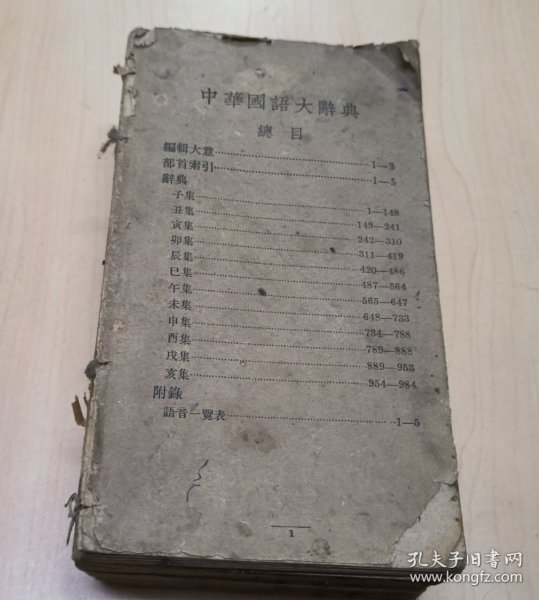 中華國語大辭典
總目
編輯大意……1—3
部首索引……1—5
辭典
子集……1—148
丑集……149—241
寅集……242—310
卯集……311—419
辰集……420—486
巳集……487—564
午集……565—647
未集……648—733
申集……734—788
酉集……789—888
戌集……889—953
亥集……954—984
附錄
語音一覽表……1—5
1
孔夫子旧书网
www.kongfz.com